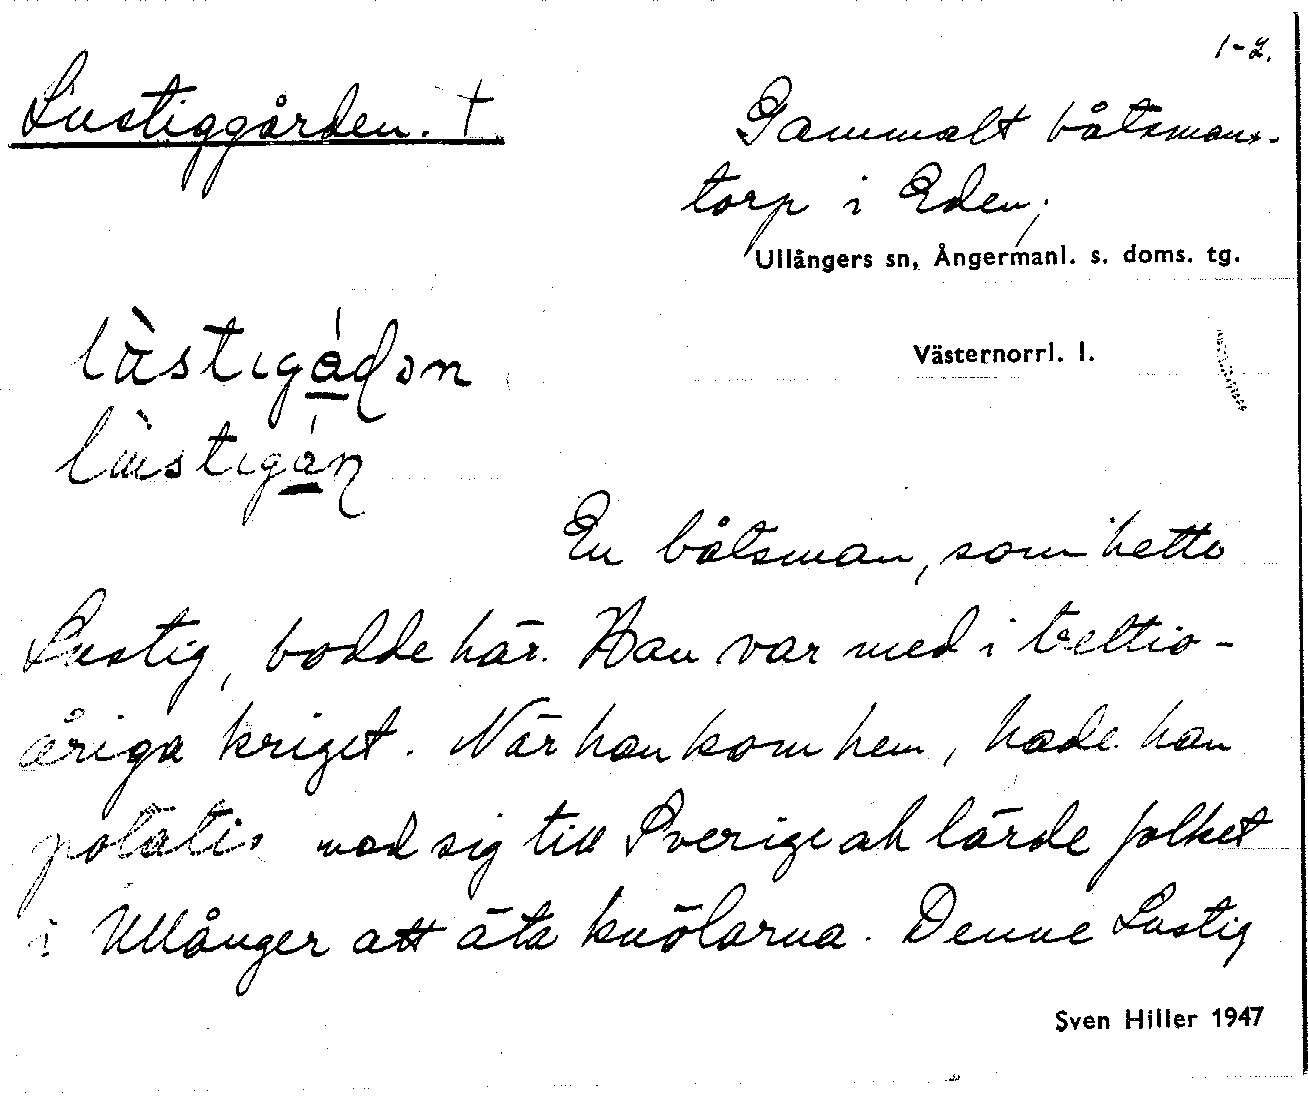 1-2.
Lustiggården. †
Gammalt båtsmans-
torp i Eden,
Ullångers sn, Ångermanl. s. doms. tg.
Västernorrl. l.
En båtsman, som hette
Lustig, bodde här. Han var med i trettio-
åriga kriget. När han kom hem, hade han
potatis med sig till Sverige och lärde folket
i Ullånger att äta knölarna. Denne Lustig
Sven Hiller 1947